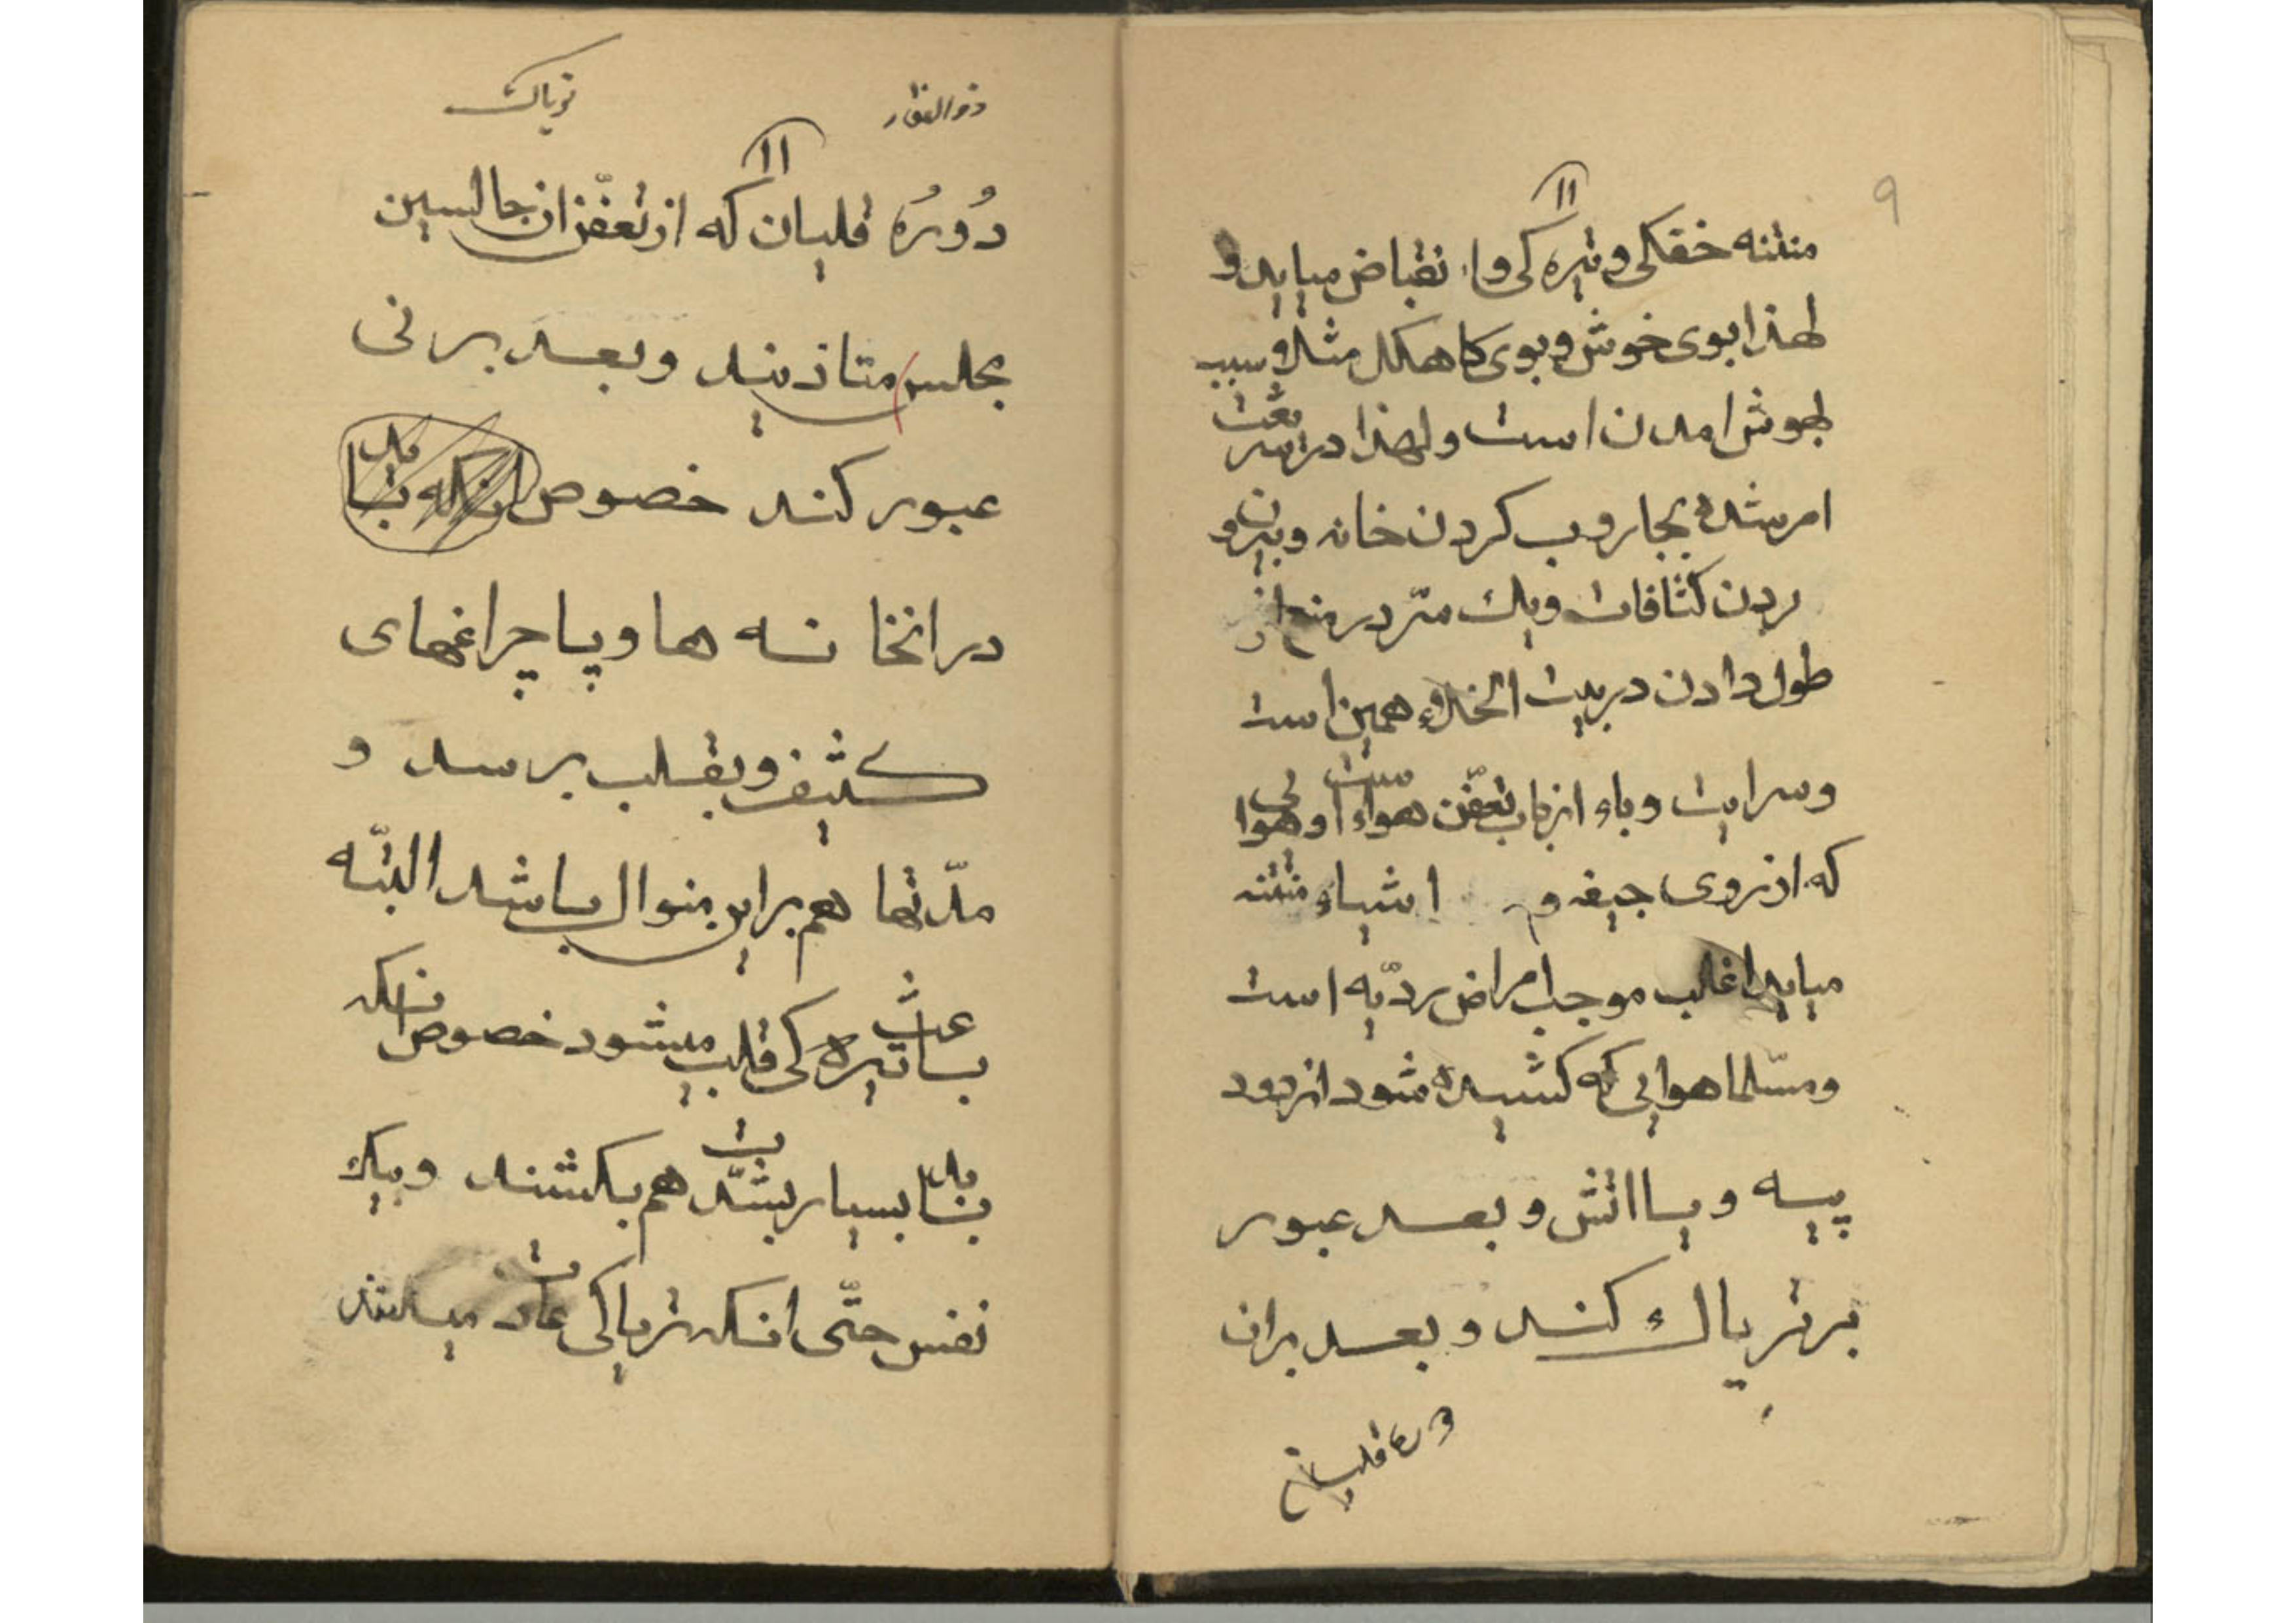 ۹
۱۱
منتنه خفکی و تیره کی و انقباض میاید و
لهذا بوی خوش و بوی کاهکل مثلا و سبب
بهوش امدن است و لهذا در شریعت
امر شده بجاروب کردن خانه و بیرون
بردن کثافات ویک متر در
طول دادن در بیت الخلاء همین است
وسرایت وباء از باب تعفن هواء است و هوایی
که از روی جیفه و اشیاء منتنه
میاید اغلب موجب امراض ردیه است
ومسلما هوایی که کشیده شود از دود
پیسه و یا اتش و بعد عبور
بر تریاک کند و بعد بران
قلیان
ذوالفقار
تریاک
۱۱
دُورُه قلیان که از تعفّن ان جالسین
مجلس متاذیند وبعد بر نی
عبور کند خصوص انکه بنا بد
در اتخا نه ها و پا چراغهای
کثیف و بقلب برسد و
مدّتها هم براین منوال باشد البتّه
باعث تیره کی قلب میشود خصوص انکه
بنابد بسیار بشدّت هم بکشند ویک
نفس حتّی انکه تریاکی عادت میکنند